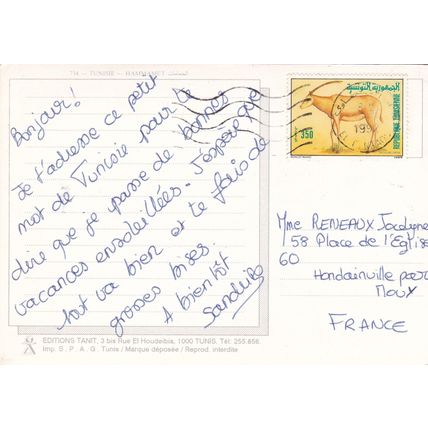 714 - TUNISIE - HAMMAMET الحمامات
Bonjour!
Je t'adresse ce petit
mot de Tunisie pour te
dire que je passe de bonnes
vacances ensoleillées. J'espère que
tout va bien et te fais de
grosses bises.
A bientôt
Sandrine
الجمهورية التونسية
REPUBLIQUE TUNISIENNE
350
199
Mme RENEAUX Jocelyne
58 Place de l'Eglise
60
Hondainville par
Mouy
FRANCE
EDITIONS TANIT, 3 bis Rue El Houdeibia, 1000 TUNIS. Tél: 255.658.
Imp. S. P. A. G. Tunis / Marque déposée / Reprod. interdite